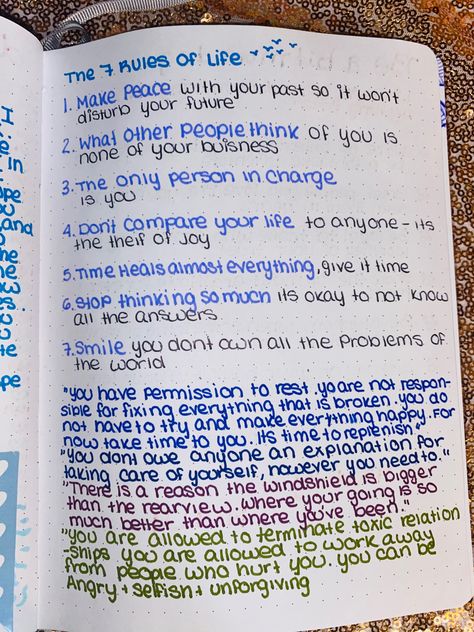 The 7 Rules of Life
1. Make Peace with your past so it won't
disturb your future
2. What other People think of you is
none of your buisness
3. The only person in charge
is you
4. Dont compare your life to anyone - its
the theif of Joy
5. Time Heals almost everything, give it time
6. Stop thinking so much its okay to not know
all the answers
7. Smile you dont own all the Problems of
the world
"you have Permission to rest. yo are not respon-
sible for fixing everything that is broken. you do
not have to try and make everything happy. For
now take time to you. Its time to replenish"
"you dont owe anyone an explanation for
taking care of yourself, however you need to."
"There is a reason the windshield is bigger
than the rearview. where your going is so
much better than where you've been."
"you are allowed to terminate toxic relation
-ships you are allowed to work away
from people who hurt you. you can be
Angry + selfish + unforgiving